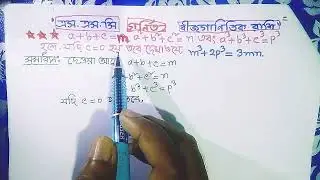 এস. এস. সি গণিত বীজগাণিতিক রাশি
★★★ a+b+c=m a²+b²+c²=n এবং a³+b³+c³=p³
হলে, যদি c=0 হয় তবে দেখাও যে m³+2p³=3mn.
সমাধান: দেওয়া আছে a+b+c=m
b²+c²=n
b³+c³=p³
যদি c=0